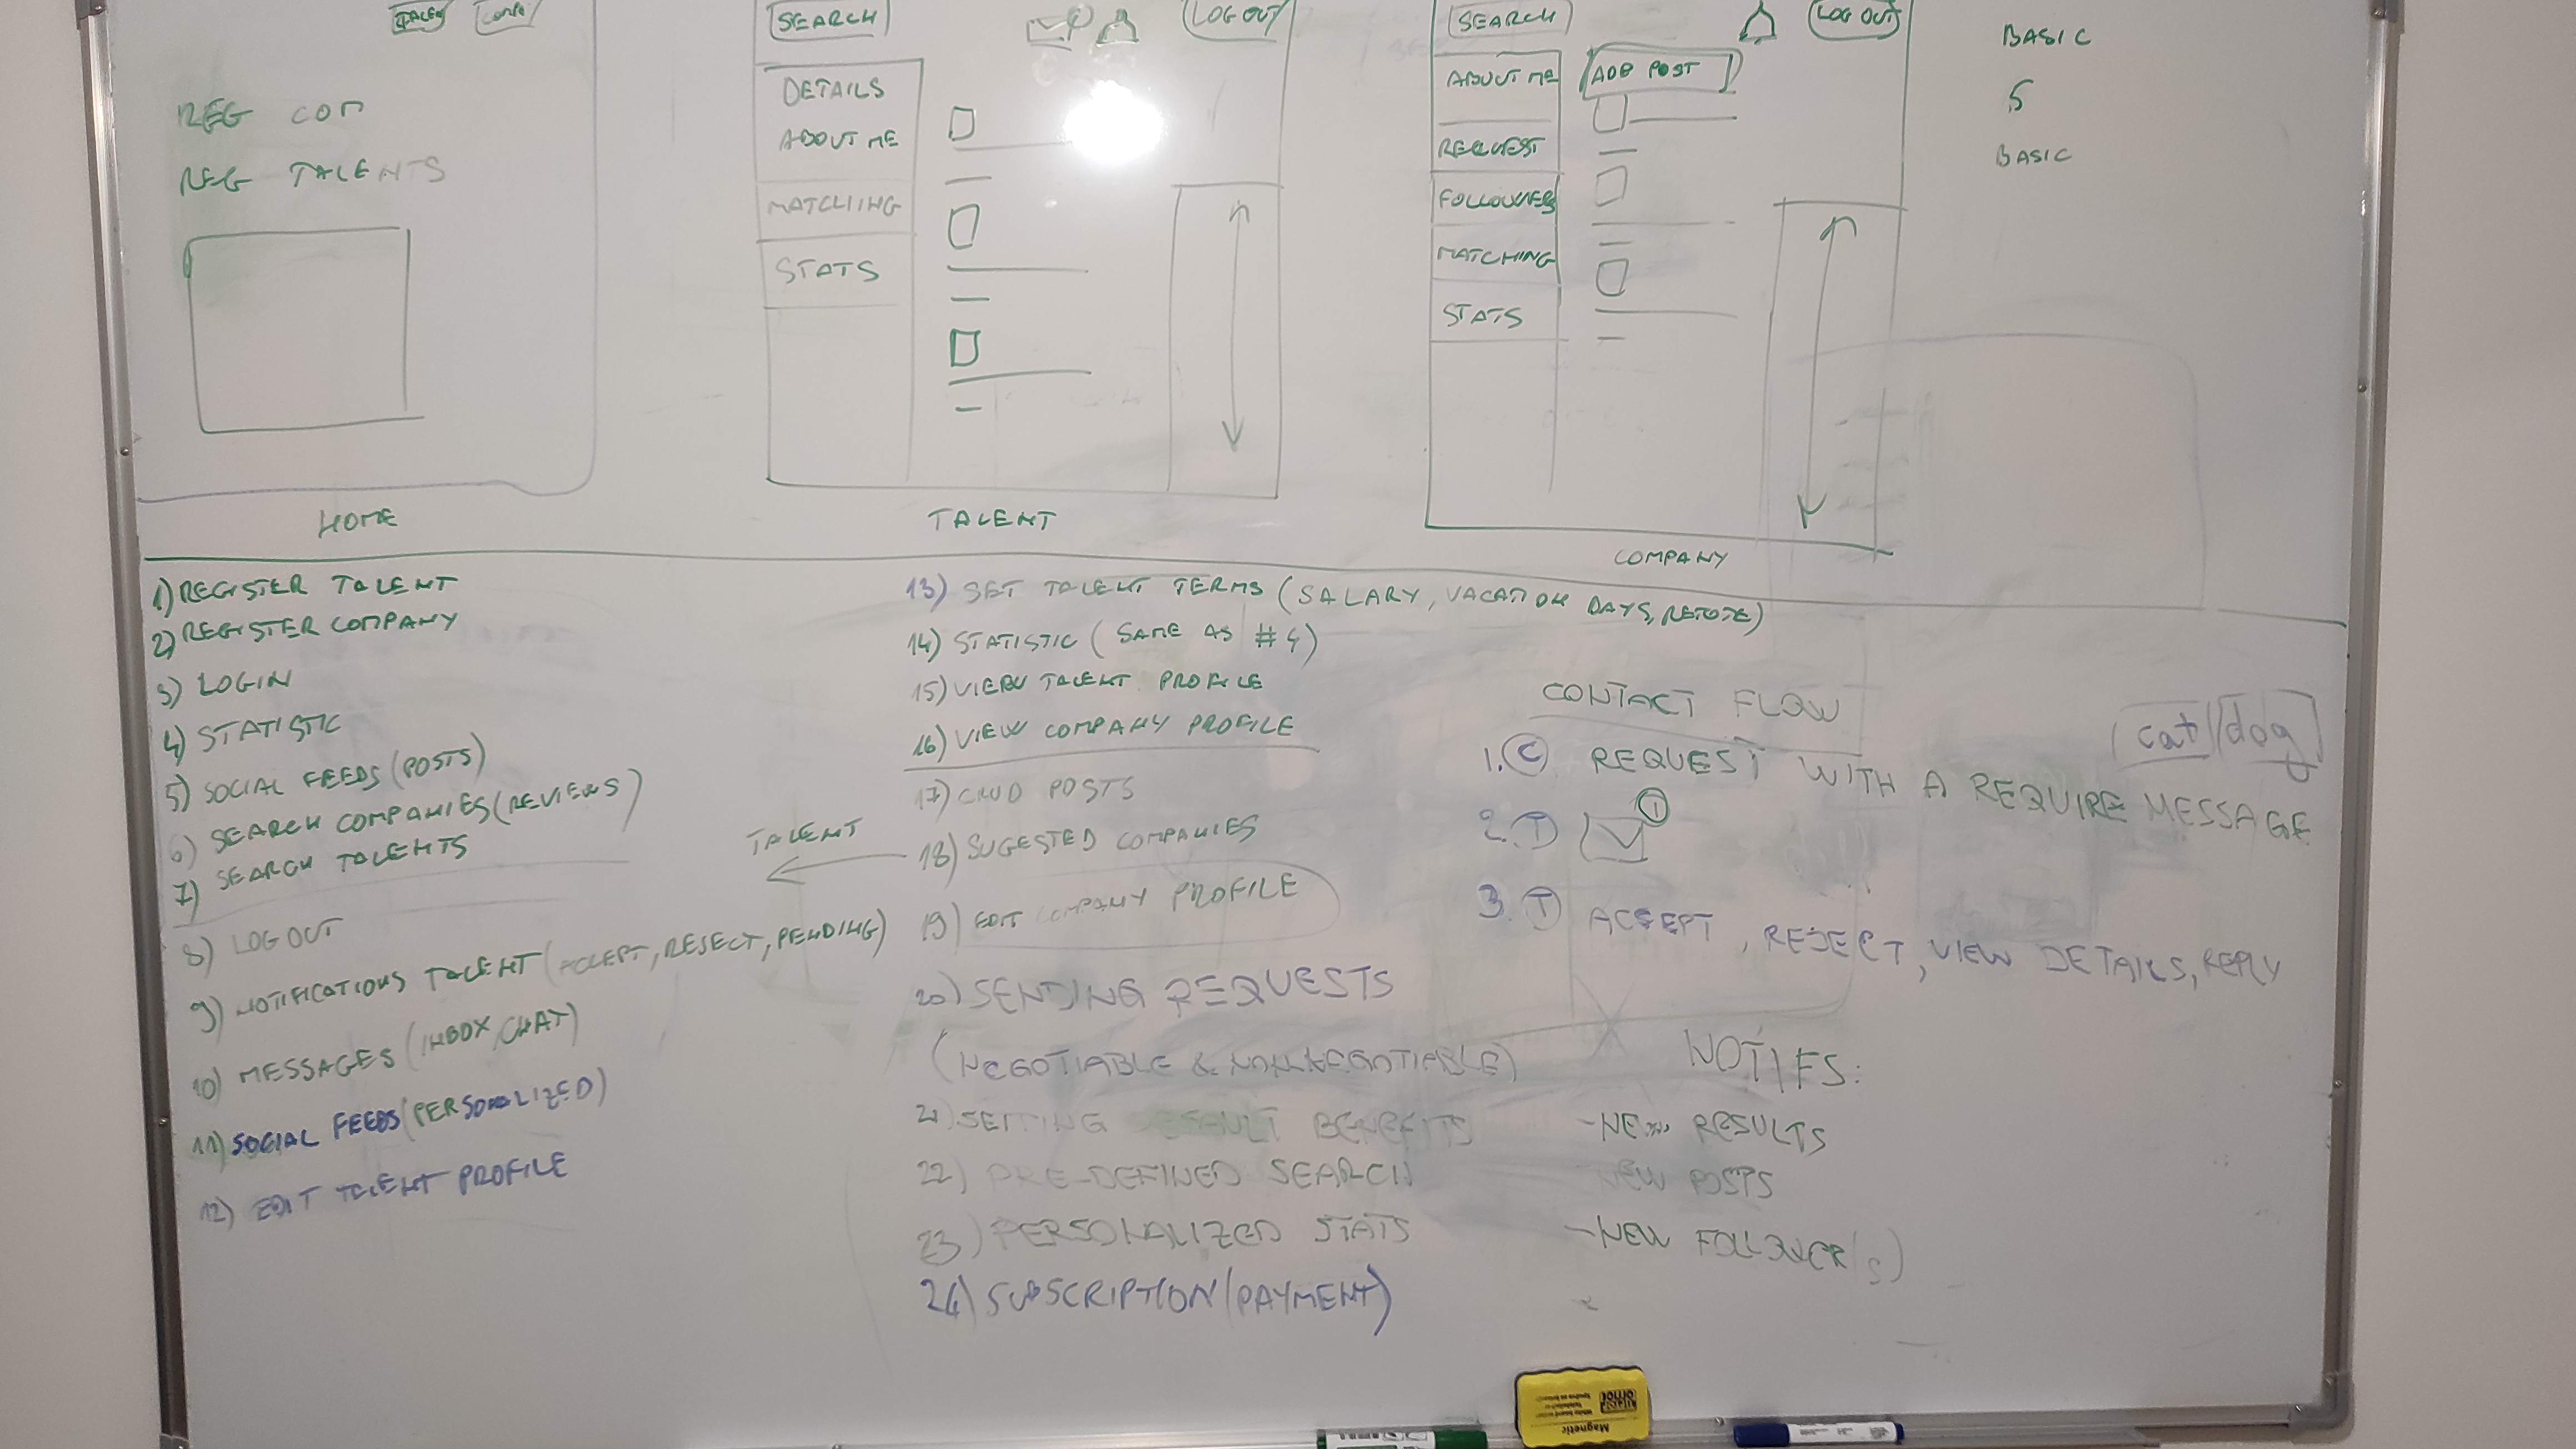 TALENT
SEARCH
LOG OUT
SEARCH
LOG OUT
BASIC
REG COM
REG TALENTS
DETAILS
ABOUT ME
MATCHING
STATS
ADD POST
ABOUT ME
REQUEST
FOLLOWERS
MATCHING
STATS
5
BASIC
HOME
TALENT
COMPANY
1) REGISTER TALENT
2) REGISTER COMPANY
3) LOGIN
4) STATISTIC
5) SOCIAL FEEDS (POSTS)
6) SEARCH COMPANIES (REVIEWS)
7) SEARCH TALENTS
8) LOG OUT
9) NOTIFICATIONS TALENT (ACCEPT, REJECT, PENDING)
10) MESSAGES (INBOX, CHAT)
11) SOCIAL FEEDS (PERSONALIZED)
12) EDIT TALENT PROFILE
13) SET TALENT TERMS (SALARY, VACATION DAYS, REMOTE)
14) STATISTIC (SAME AS #4)
15) VIEW TALENT PROFILE
16) VIEW COMPANY PROFILE
17) CRUD POSTS
TALENT
18) SUGESTED COMPANIES
19) EDIT COMPANY PROFILE
20) SENDING REQUESTS
(NEGOTIABLE & NONNEGOTIABLE)
21) SETTING DEFAULT BENEFITS
22) PRE-DEFINED SEARCH
23) PERSONALIZED STATS
24) SUBSCRIPTION (PAYMENT)
CONTACT FLOW
cat/dog
1. C REQUEST WITH A REQUIRE MESSAGE
2. T 1
3. T ACCEPT, REJECT, VIEW DETAILS, REPLY
NOTIFS:
- NEW RESULTS
NEW POSTS
- NEW FOLLOWER(S)
ornot
Magnetic